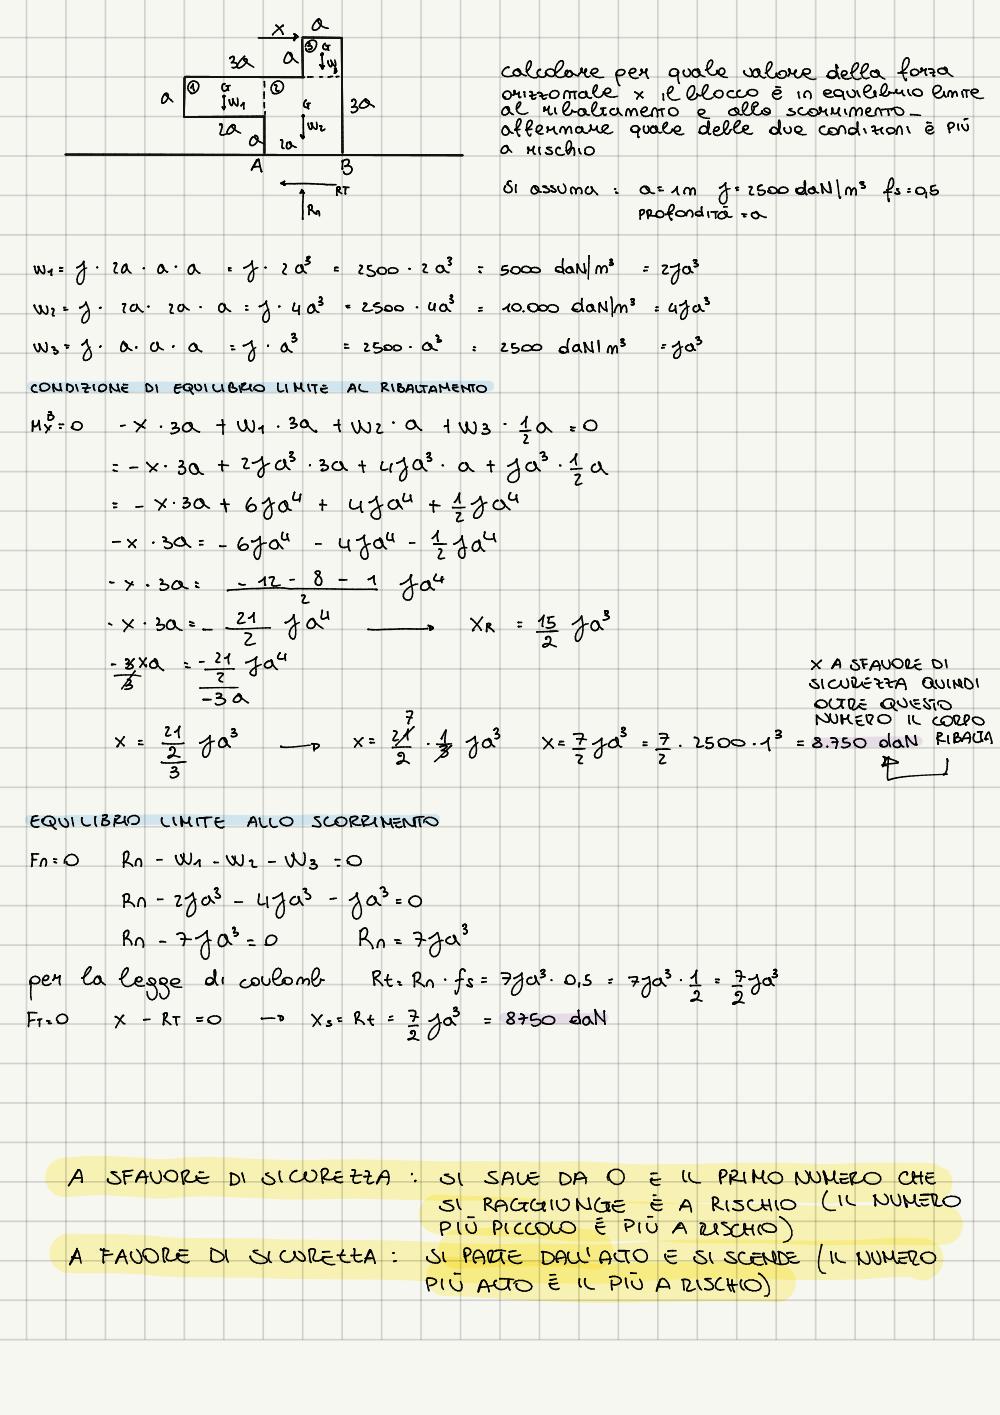 x a
3a a ③ G W3
① ②
a G W1 G 3a
W2
2a a 2a
A B
RT
Rn
calcolare per quale valore della forza
orizzontale x il blocco è in equilibrio limite
al ribaltamento e allo scorrimento_
affermare quale delle due condizioni è più
a rischio
Si assuma : a= 1m γ= 2500 daN/m³ fs=0,5
profondità =a
W1= γ · 2a · a · a = γ · 2a³ = 2500 · 2a³ = 5000 daN/m³ = 2γa³
W2= γ · 2a · 2a · a = γ · 4a³ = 2500 · 4a³ = 10.000 daN/m³ = 4γa³
W3= γ · a · a · a = γ · a³ = 2500 · a³ = 2500 daN/m³ = γa³
CONDIZIONE DI EQUILIBRIO LIMITE AL RIBALTAMENTO
Mx^B=0 -x · 3a + W1 · 3a + W2 · a + W3 · 1/2 a =0
= -x · 3a + 2γa³ · 3a + 4γa³ · a + γa³ · 1/2 a
= -x·3a + 6γa⁴ + 4γa⁴ + 1/2 γa⁴
-x · 3a = - 6γa⁴ - 4γa⁴ - 1/2 γa⁴
-x · 3a = (-12 - 8 - 1)/2 γa⁴
-x · 3a = - 21/2 γa⁴ → XR = 15/2 γa³
-3xa/3 = (-21/2 γa⁴)/(-3a)
X A SFAVORE DI
SICUREZZA QUINDI
OLTRE QUESTO
NUMERO IL CORPO
RIBALTA
x = (21/2)/3 γa³ → x= 21/2 · 1/3 γa³ 7 x= 7/2 γa³ = 7/2 · 2500 · 1³ = 8.750 daN
EQUILIBRIO LIMITE ALLO SCORRIMENTO
Fn=0 Rn - W1 - W2 - W3 =0
Rn - 2γa³ - 4γa³ - γa³=0
Rn - 7γa³=0 Rn = 7γa³
per la legge di coulomb Rt= Rn · fs = 7γa³ · 0,5 = 7γa³ · 1/2 = 7/2 γa³
FT=0 x - RT =0 → Xs= Rt = 7/2 γa³ = 8750 daN
A SFAVORE DI SICUREZZA : SI SALE DA 0 E IL PRIMO NUMERO CHE
SI RAGGIUNGE È A RISCHIO (IL NUMERO
PIÙ PICCOLO È PIÙ A RISCHIO)
A FAVORE DI SICUREZZA : SI PARTE DALL'ALTO E SI SCENDE (IL NUMERO
PIÙ ALTO È IL PIÙ A RISCHIO)